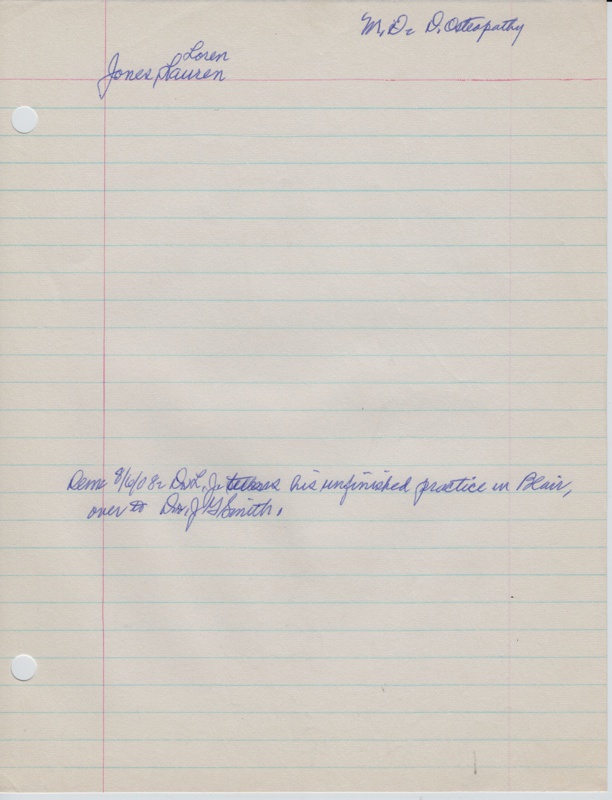 M.D. D. Osteopathy
Loren
Jones, Lauren
Dem 8/6/08 Dr. L. J. turns his unfinished practice in Blair,
over to Dr. J G Smith.